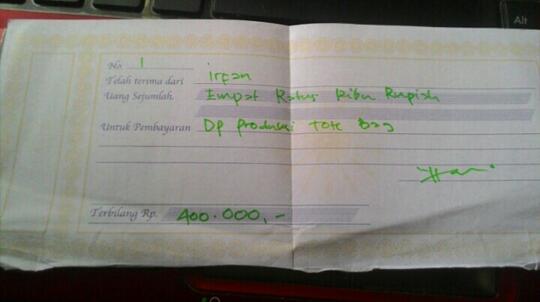 Alt
No. 1
Telah terima dari irpan
Uang Sejumlah. Empat Ratus Ribu Rupiah
Untuk Pembayaran DP produksi Tote Bag
Terbilang Rp. 400.000,-